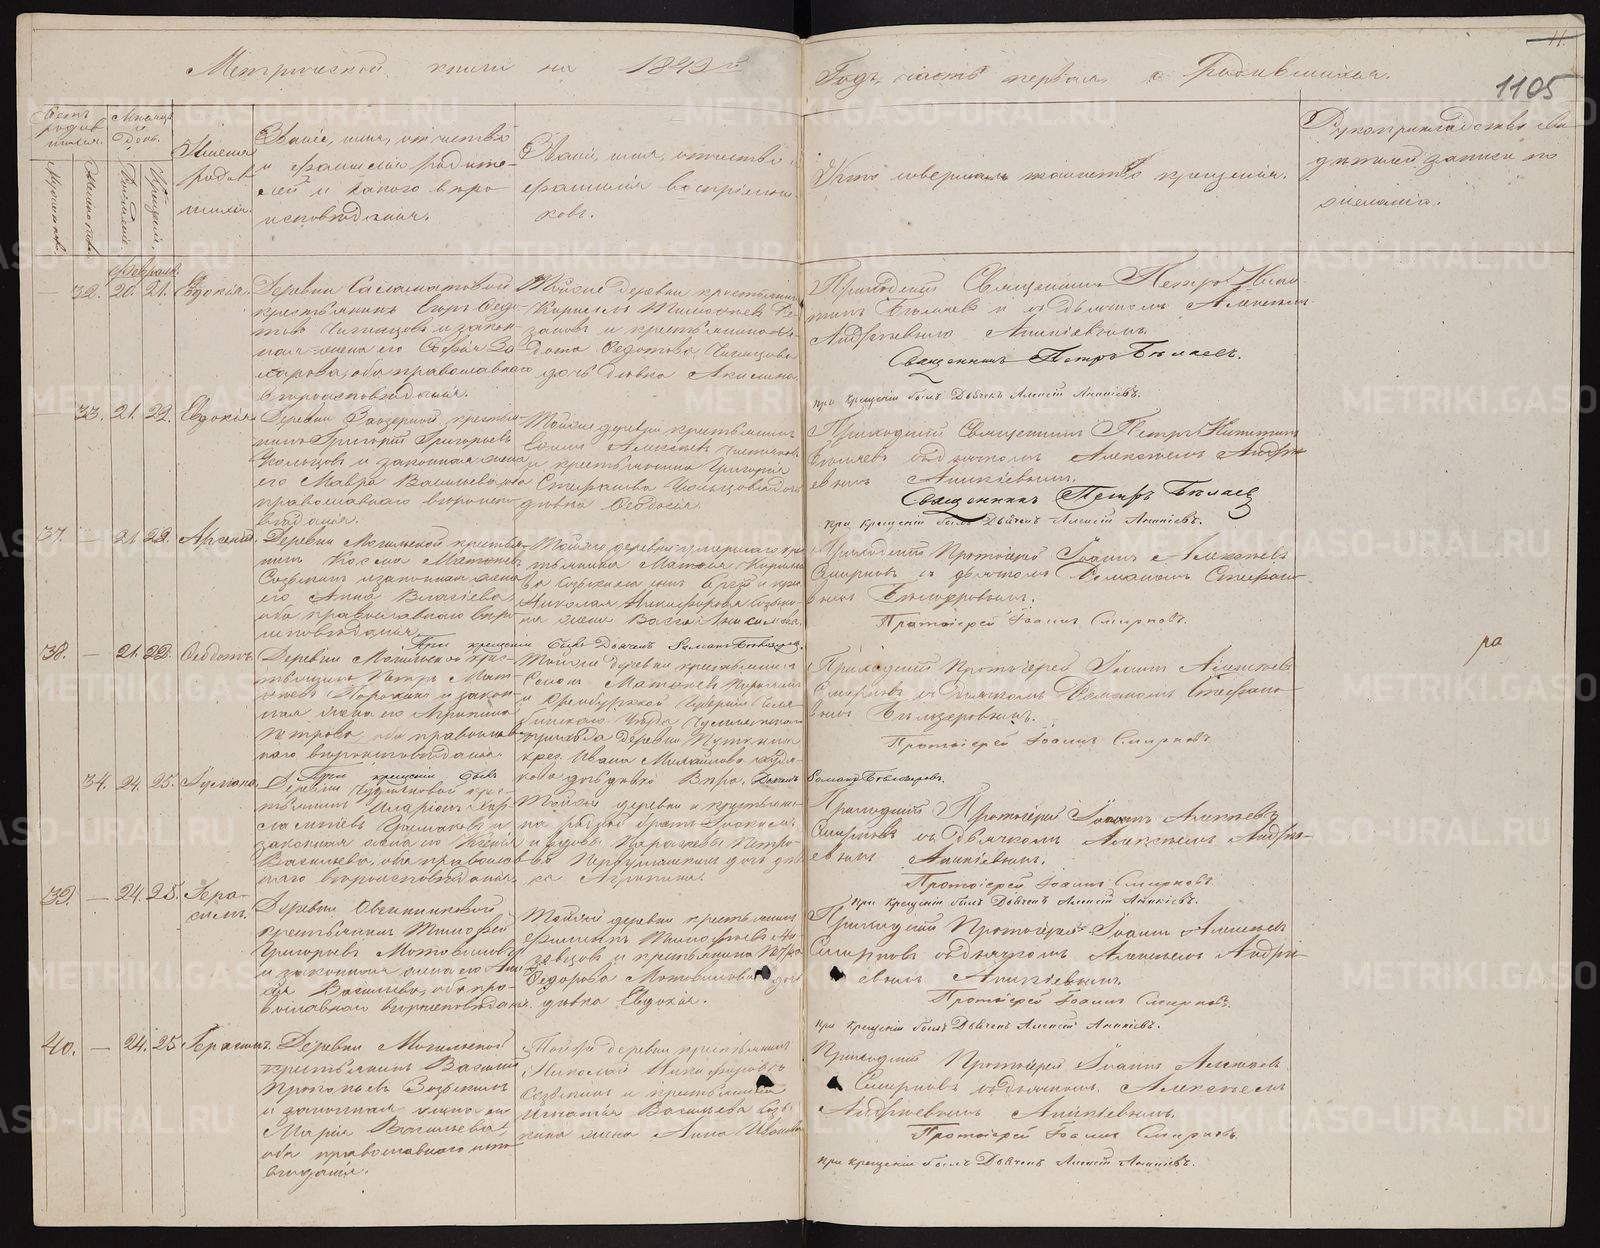 Метрической книги на 1843й
Годъ, часть первая о Родившихся.
11.
1105
Счетъ родив-
шихся.
Мужеска
Женска
Месяцъ
и
День.
Рожденія.
Крещенія.
Имена
родив-
шихся.
Званіе, имя, отчество
и фамилія родите-
лей и какого веро
исповеданія.
Званіе, имя, отчество и
фамилія воспріемни-
ковъ.
Кто совершалъ таинство крещенія.
Рукоприкладство сви
детелей записи по
желанію.
Февраля.
— 32. 20. 21. Евдокія.
Деревни Саламатовой
крестьянинъ Егоръ Федо-
товъ и закон-
ная жена его Софія За-
харова, оба православнаго
вероисповеданія.
Тойже деревни крестьянинъ
Кириллъ Тимофеевъ
и крестьянина
Федотова
дочь девка Акилина.
Приходскій Священникъ Петръ Ники-
тинъ Беляевъ и съ дьячкомъ Алексеемъ
Андреевымъ Аникіевымъ.
Священникъ Петръ Беляевъ.
при крещеніи былъ Дьячекъ Алексей Аникіевъ.
— 33. 21. 22. Евдокія.
Деревни Заозерной крестья-
нинъ Григорій Григорьевъ
Кольцовъ и законная жена
его Мавра Васильева, оба
православнаго вероиспо-
веданія.
Тойже деревни крестьянинъ
Алексеевъ
и крестьянина Григорія
Стефанова Кольцова дочь
девка Феодосья.
Приходскій Священникъ Петръ Никитинъ
Беляевъ съ дьячкомъ Алексеемъ Андре-
евымъ Аникіевымъ.
Священникъ Петръ Беляев
при крещеніи былъ Дьячекъ Алексей Аникіевъ.
37. — 21. 22. Арсеній.
Деревни Могильской крестья-
нинъ Косма Матвеевъ
Созыкинъ и законная жена
его Анна Власіева,
оба православнаго веро
исповеданія.
Тойже деревни умершаго кре
стьянина Матвея Кирило
ва Созыкина сынъ и кре
Николая Никифорова Созыки-
на жена Васса Анисимова.
При крещеніи былъ Дьячекъ Романъ Белозеровъ.
Приходскій Протоіерей Іоаннъ Алексеевъ
Смирновъ съ дьячкомъ Романомъ Стефано-
вымъ Белозеровымъ.
Протоіерей Іоаннъ Смирновъ.
38. — 21. 22. Феодотъ.
Деревни Могильской крес-
тьянинъ Петръ Мат-
веевъ и закон-
ная жена его Агрипина
Петрова, оба православ-
наго вероисповеданія.
Тойже деревни крестьянинъ
Матвеевъ
и Оренбургской Губерніи Челя-
бинскаго Уезда
прихода деревни
крес. Ивана Михайлова
дочь девка Вера. Дьячекъ
Приходскій Протоіерей Іоаннъ Алексеевъ
Смирновъ съ дьячкомъ Романомъ Стефано-
вымъ Белозеровымъ.
Протоіерей Іоаннъ Смирновъ.
ра
При крещеніи былъ
Романъ Белозеровъ.
— 34. 24. 25. Іуліана.
Деревни крес-
тьянинъ Иларіонъ Хар-
лампіевъ и
законная жена его Ксенія
Васильева, оба православ
наго вероисповеданія.
Тойже деревни крестьяни-
на родной братъ
и вдовы Парасковы Петро-
вой дочь дев
ка Агрипина.
Приходскій Протоіерей Іоаннъ Алексеевъ
Смирновъ съ дьячкомъ Алексеемъ Андре-
евымъ Аникіевымъ.
Протоіерей Іоаннъ Смирновъ
при крещеніи былъ Дьячекъ Алексей Аникіевъ.
39. — 24. 25. Гера-
симъ.
Деревни Овсянниковой
крестьянинъ Тимофей
Григорьевъ Мотовиловъ
и законная жена его
Васильева, оба пра-
вославнаго вероисповедан.
Тойже деревни крестьянинъ
Филиппъ Тимофеевъ
и крестьянина Петра
Федорова Мотовилова дочь
девка Евдокія.
Приходскій Протоіерей Іоаннъ Алексеевъ
Смирновъ съ дьячкомъ Алексеемъ Андре-
евымъ Аникіевымъ.
Протоіерей Іоаннъ Смирновъ.
при крещеніи былъ Дьячекъ Алексей Аникіевъ.
40. — 24. 25. Герасимъ.
Деревни Могильской
крестьянинъ Василій
Прокопьевъ Созыкинъ
и законная жена его
Марія Васильева,
оба православнаго испо-
веданія.
Тойже деревни крестьянинъ
Николай Никифоровъ
Созыкинъ и крестьянина
Игнатья Васильева Созы-
кина жена Анна Иванова.
Приходскій Протоіерей Іоаннъ Алексеевъ
Смирновъ съ дьячкомъ Алексеемъ
Андреевымъ Аникіевымъ.
Протоіерей Іоаннъ Смирновъ
при крещеніи былъ Дьячекъ Алексей Аникіевъ.
METRIKI.GASO-URAL.RU